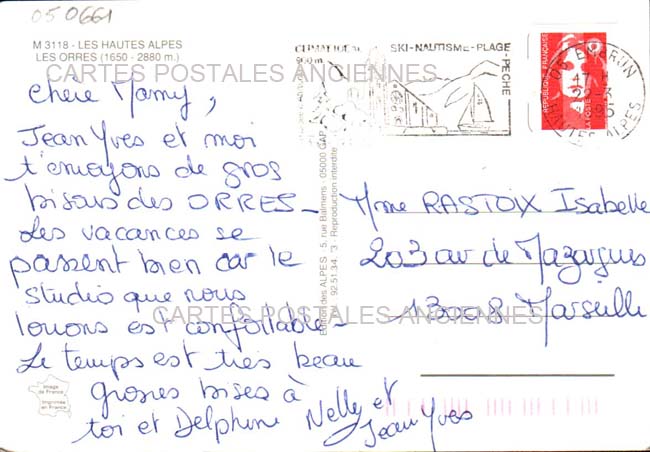 050661
M 3118 - LES HAUTES ALPES
LES ORRES (1650 - 2880 m.)
CLIMATIQUE
900 m
SKI-NAUTISME-PLAGE
-PECHE
REPUBLIQUE FRANÇAISE
05 EMBRUN
17 H
22-3
1995
HAUTES ALPES
CARTES POSTALES ANCIENNES
Chère Mamy,
Jean Yves et moi
t'envoyons de gros
bisous des ORRES -
Les vacances se
passent bien car le
studio que nous
louons est confortable -
Le temps est très beau
grosses bises à
toi et Delphine Nelly et
Jean Yves
Edition des ALPES - 5, rue Balmens - 05000 GAP
92.51.34. Reproduction interdite
Mme RASTOIX Isabelle
203 av de Mazargues
13008 Marseille
CARTES POSTALES ANCIENNES
Image
de France
Imprimée
en France